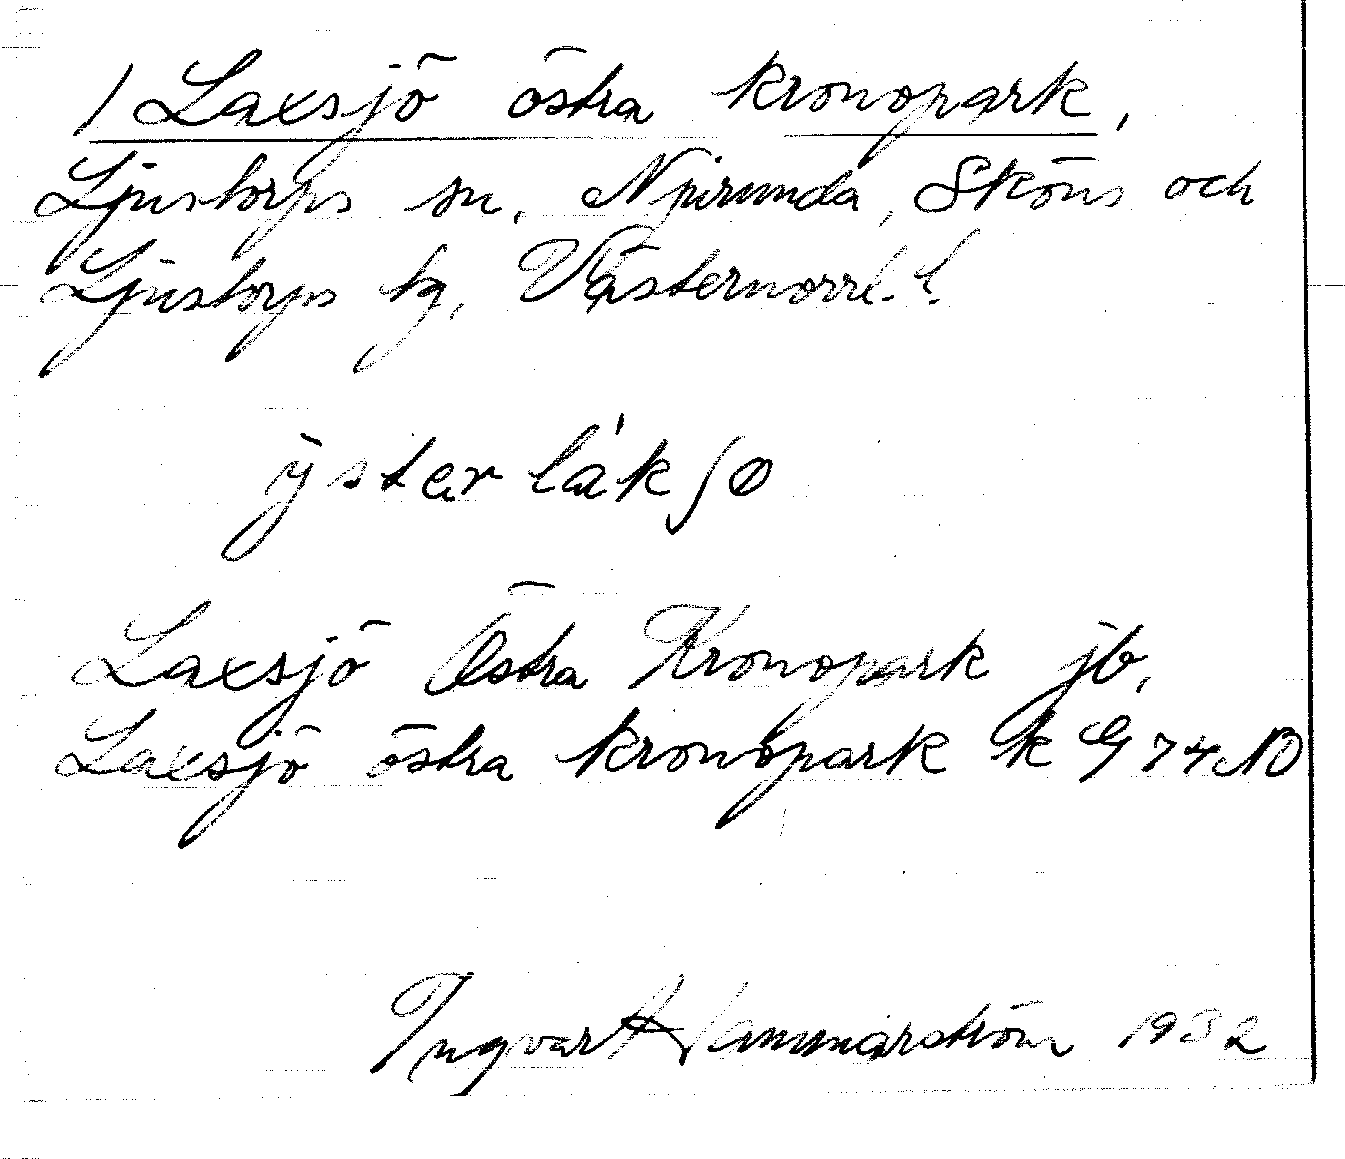 / Laxsjö östra kronopark,
Ljustorps sn, Njurunda, Sköns och
Ljustorps tg, Västernorrl. l.
ÿster lákʃø
Laxsjö Östra Kronopark jb,
Laxsjö östra kronopark k G 74 NO
Ingvar Hammarström 1932